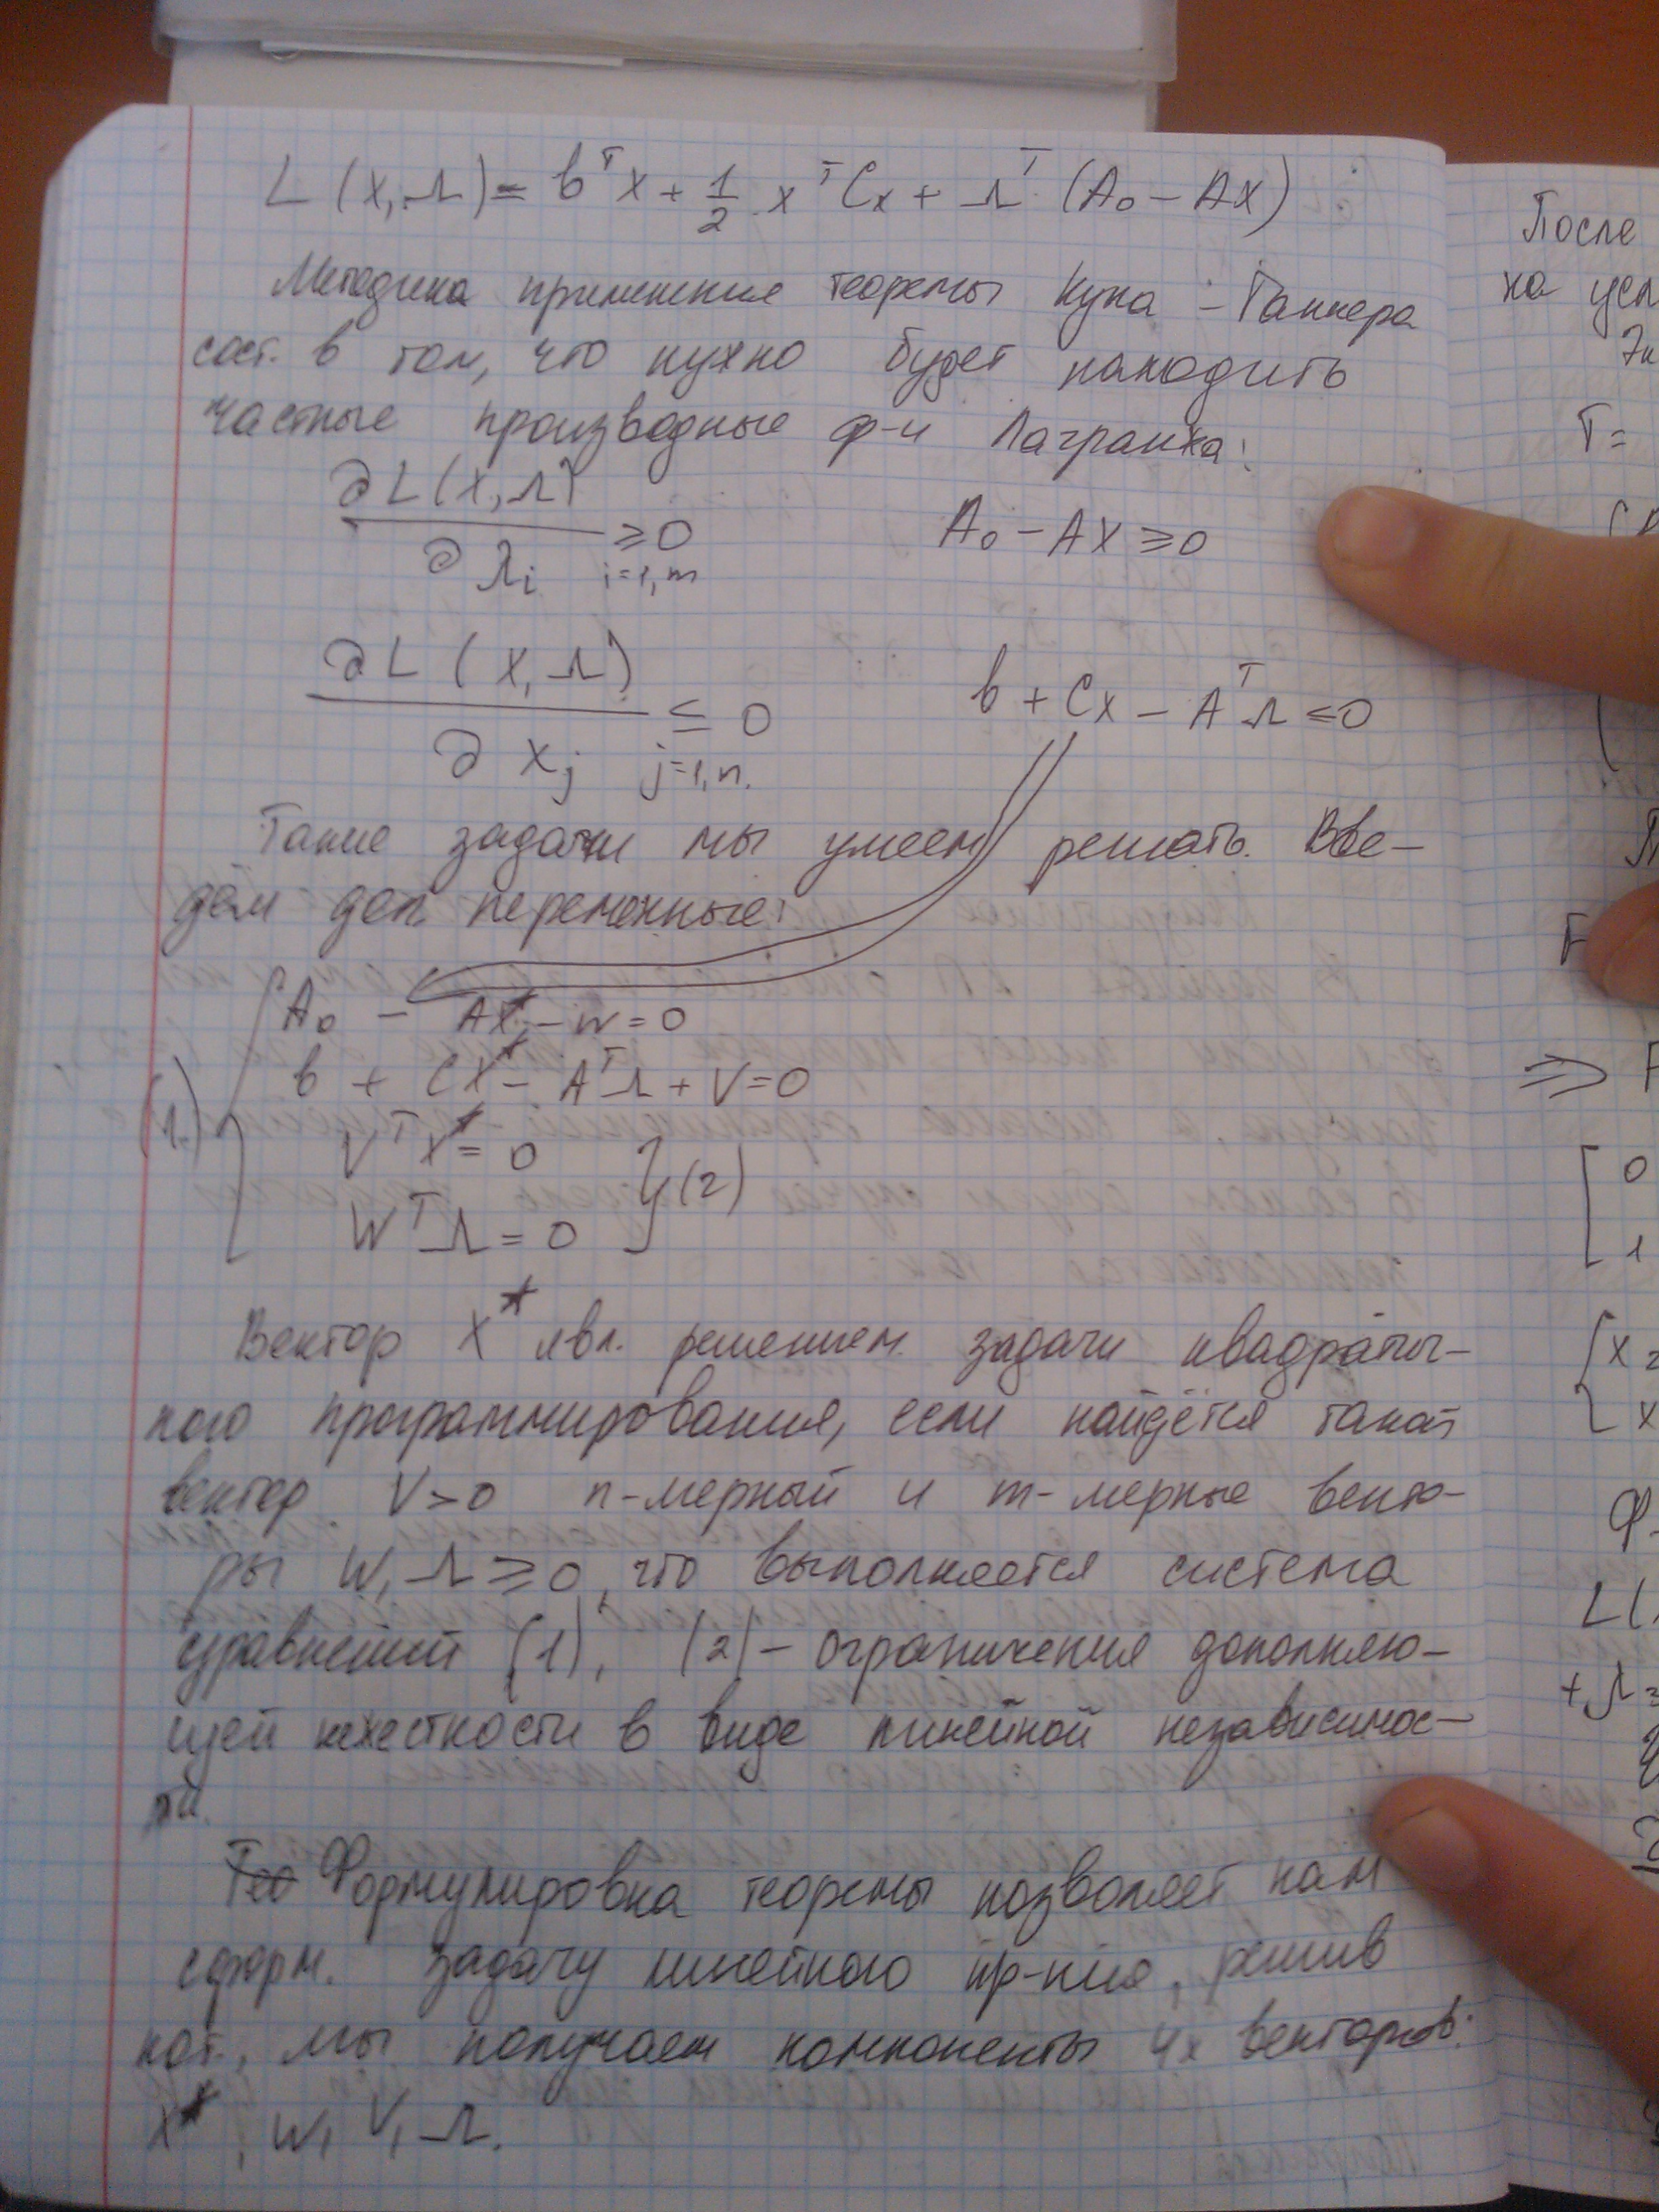 L (X, Λ) = b^T X + 1/2 X^T CX + Λ^T (A₀ - AX)
Методика применение теоремы Куна - Таккера
сост. в том, что нужно будет находить
частные производные ф-и Лагранжа:
∂L(X, Λ) / ∂λi ≥ 0 i=1,m A₀ - AX ≥ 0
∂L (X, Λ) / ∂xj ≤ 0 j=1,n. b + CX - A^T Λ ≤ 0
Такие задачи мы умеем решать. Вве-
дём доп. переменные:
A₀ - AX* - W = 0
b + CX* - A^T Λ + V = 0
(1.)
V^T X* = 0
} (2)
W^T Λ = 0
Вектор X* явл. решением задачи квадратич-
ного программирования, если найдётся такой
вектор V>0 n-мерный и m-мерные векто-
ры W, Λ ≥ 0, что выполняется система
уравнений (1), (2) - ограничения дополняю-
щей нежесткости в виде линейной независимос-
ти.
Формулировка теоремы позволяет нам
сформ. задачу линейного пр-ния, решив
кот., мы получаем компоненты 4х векторов:
X*, W, V, Λ.
После
на усл
T=
⇒ F
[0
1
{x
x
Ф-
L(
+λ